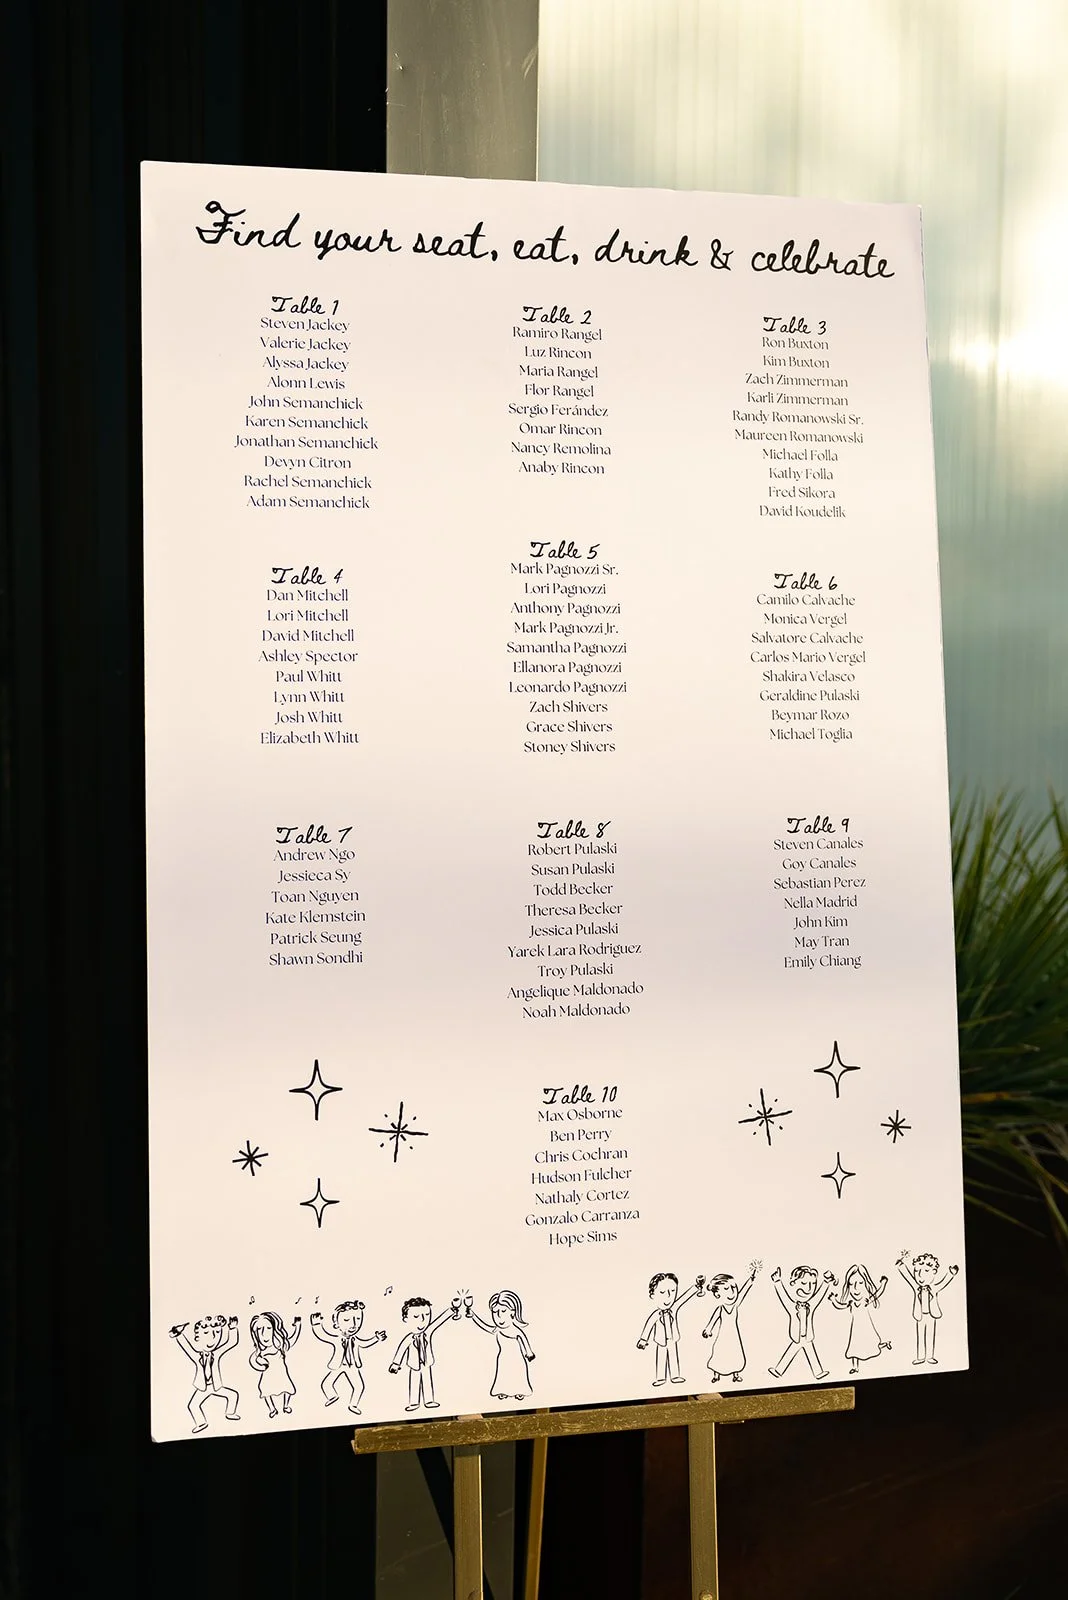 Find your seat, eat, drink & celebrate
Table 1
Steven Jackey
Valerie Jackey
Alyssa Jackey
Alonn Lewis
John Semanchick
Karen Semanchick
Jonathan Semanchick
Devyn Citron
Rachel Semanchick
Adam Semanchick
Table 2
Ramiro Rangel
Luz Rincon
Maria Rangel
Flor Rangel
Sergio Ferández
Omar Rincon
Nancy Remolina
Anaby Rincon
Table 3
Ron Buxton
Kim Buxton
Zach Zimmerman
Karli Zimmerman
Randy Romanowski Sr.
Maureen Romanowski
Michael Folla
Kathy Folla
Fred Sikora
David Koudelik
Table 4
Dan Mitchell
Lori Mitchell
David Mitchell
Ashley Spector
Paul Whitt
Lynn Whitt
Josh Whitt
Elizabeth Whitt
Table 5
Mark Pagnozzi Sr.
Lori Pagnozzi
Anthony Pagnozzi
Mark Pagnozzi Jr.
Samantha Pagnozzi
Ellanora Pagnozzi
Leonardo Pagnozzi
Zach Shivers
Grace Shivers
Stoney Shivers
Table 6
Camilo Calvache
Monica Vergel
Salvatore Calvache
Carlos Mario Vergel
Shakira Velasco
Geraldine Pulaski
Beymar Rozo
Michael Toglia
Table 7
Andrew Ngo
Jessieca Sy
Toan Nguyen
Kate Klemstein
Patrick Seung
Shawn Sondhi
Table 8
Robert Pulaski
Susan Pulaski
Todd Becker
Theresa Becker
Jessica Pulaski
Yarek Lara Rodriguez
Troy Pulaski
Angelique Maldonado
Noah Maldonado
Table 9
Steven Canales
Goy Canales
Sebastian Perez
Nella Madrid
John Kim
May Tran
Emily Chiang
Table 10
Max Osborne
Ben Perry
Chris Cochran
Hudson Fulcher
Nathaly Cortez
Gonzalo Carranza
Hope Sims